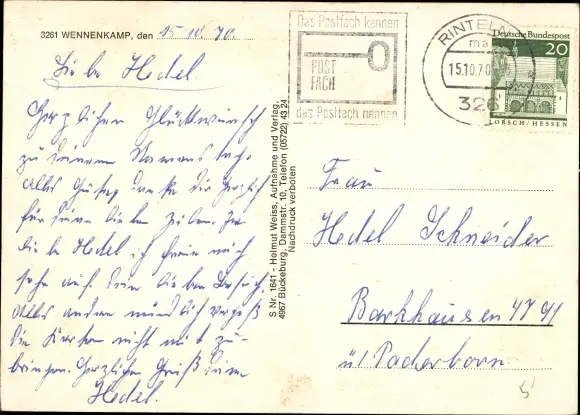 3261 WENNENKAMP, den 15.10.70.
Liebe Hedel.
Herzlichen Glückwunsch
zu deinem Namenstage.
Alles Gute danke dir herzlich
für deine lieben Zeilen. Ja
liebe Hedel ich freue mich
sehr auf dein lieben Besuch,
alles andere mündlich vergeß
die Karten nicht mit zu-
bringen. Herzlichen Gruß deine
Hedel.
S Nr. 1641 - Helmut Weiss, Aufnahme und Verlag,
4967 Bückeburg, Dammstr. 10, Telefon (05722) 43 24
Nachdruck verboten
Das Postfach kennen
POST
FACH
das Postfach nennen
RINTELN
ma
15.10.70
326
Deutsche Bundespost
20
LORSCH/HESSEN
Frau
Hedel Schneider
Barkhausen 4791
ü/ Paderborn
5